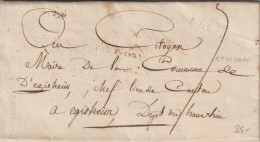 Au Citoyen
Maire De la Commune de
D'egisheim, chef lieu de Canton
a egisheim Dépt du haut rhin
25.-